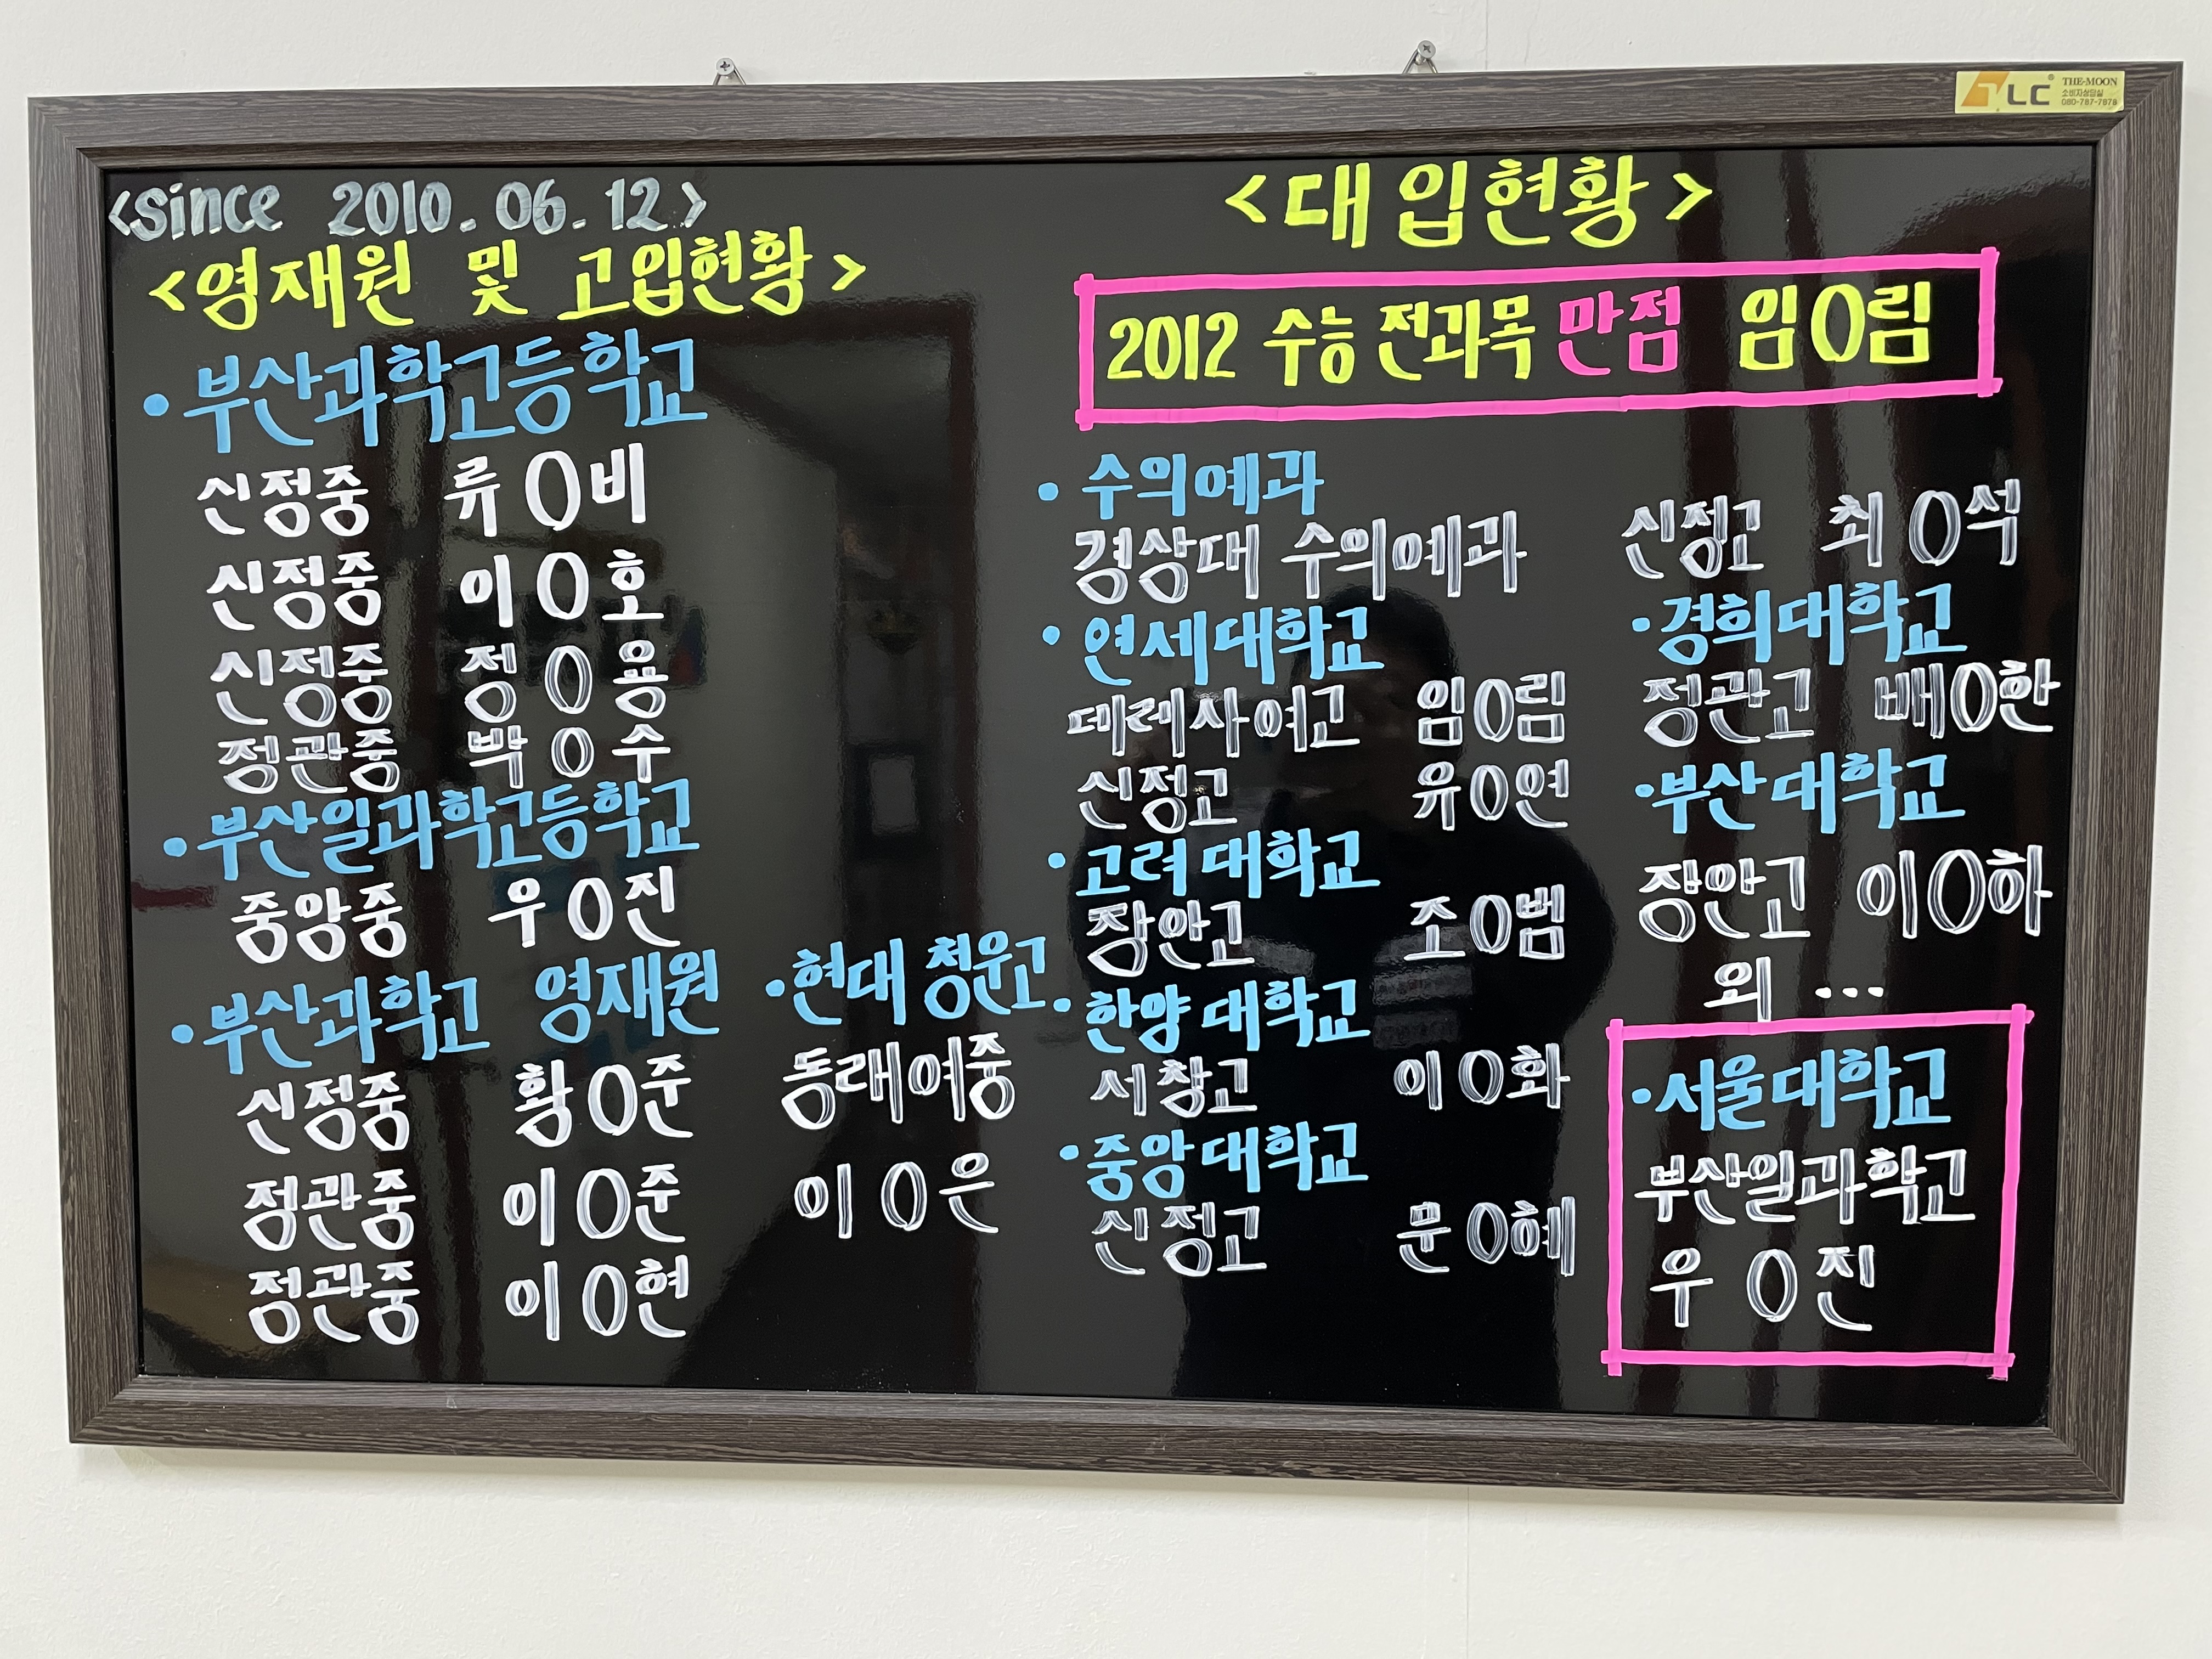 TLC® THE-MOON
소비자상담실
080-787-7878
<since 2010.06.12>
<영재원 및 고입현황>
• 부산과학고등학교
신정중 류O비
신정중 이O호
신정중 정O용
정관중 박O수
• 부산일과학고등학교
중앙중 우O진
• 부산과학고 영재원
신정중 황O준
정관중 이O준
정관중 이O현
• 현대 청운고
동래여중
이O은
<대입현황>
2012 수능 전과목 만점 임O림
• 수의예과
경상대 수의예과 신정고 최O석
• 연세대학교
데레사여고 임O림
신정고 유O연
• 고려대학교
장안고 조O범
• 한양대학교
서창고 이O화
• 중앙대학교
신정고 문O혜
• 경희대학교
정관고 배O한
• 부산대학교
장안고 이O하
외 ...
• 서울대학교
부산일과학고
우O진